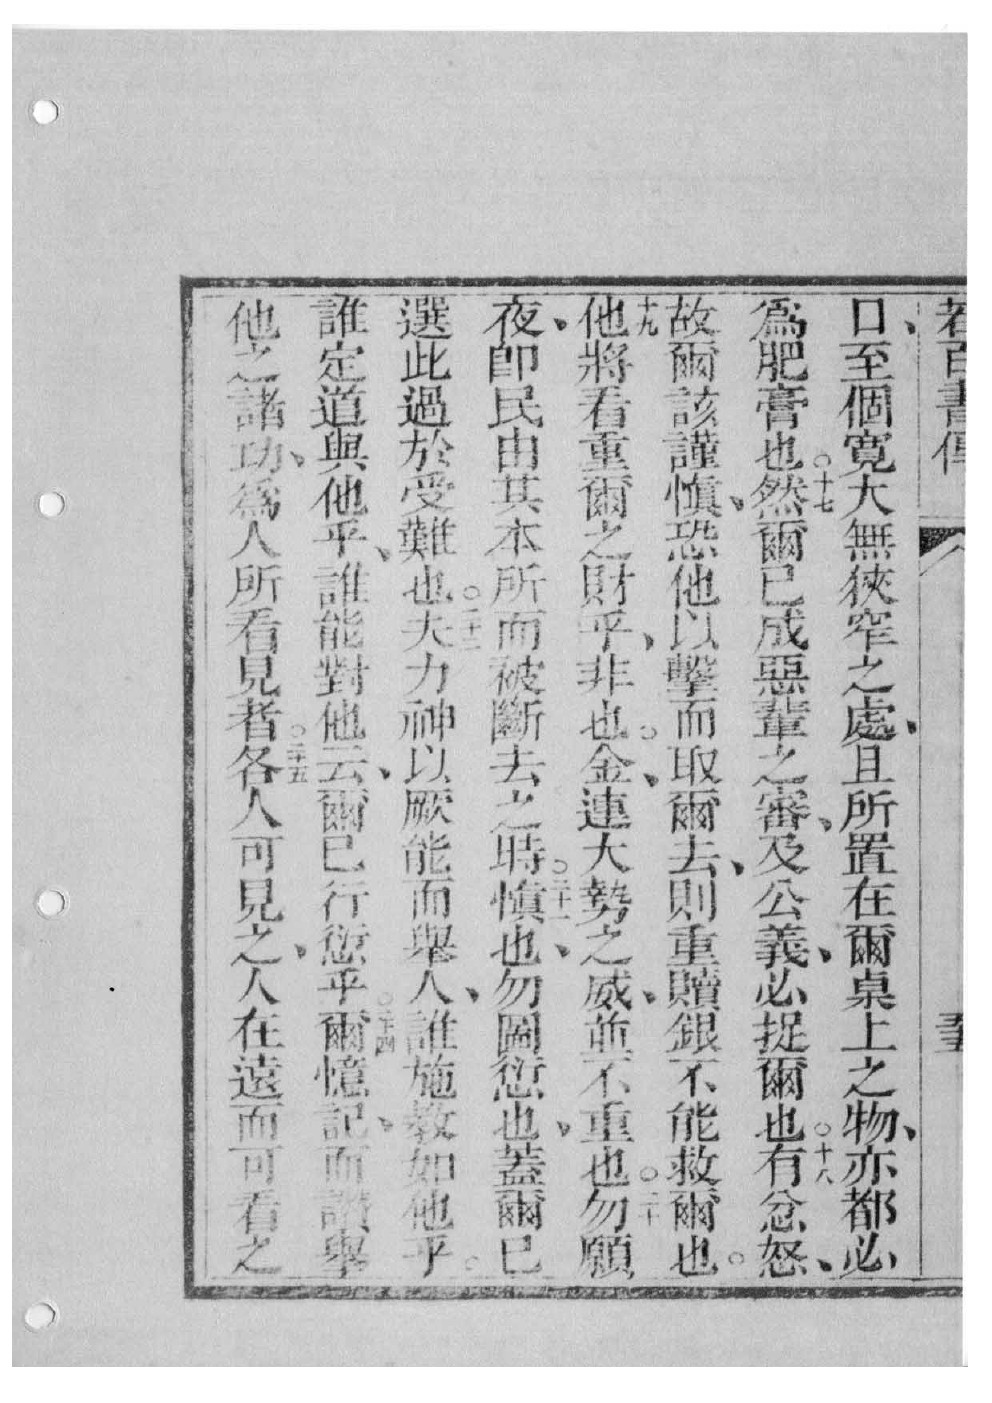 若百書傳
口、至個寬大無狹窄之處、且所置在爾桌上之物、亦都必
為肥膏也○十七然爾已成惡輩之審、及公義、必捉爾也○十八有忿怒、
故爾該謹慎、恐他以擊而取爾去、則重贖銀不能救爾也。
十九他將看重爾之財乎、非也。金、連大勢之威、並不重也○二十勿願
夜、即民由其本所而被斷去之時○二十一慎也、勿圖愆也、蓋爾已
選此過於受難也○二十二夫力神以厥能而舉人、誰施教如他乎。
誰定道與他乎、誰能對他云、爾已行愆乎○二十四爾憶記、而讚舉
他之諸功、為人所看見者○二十五各人可見之、人在遠而可看之